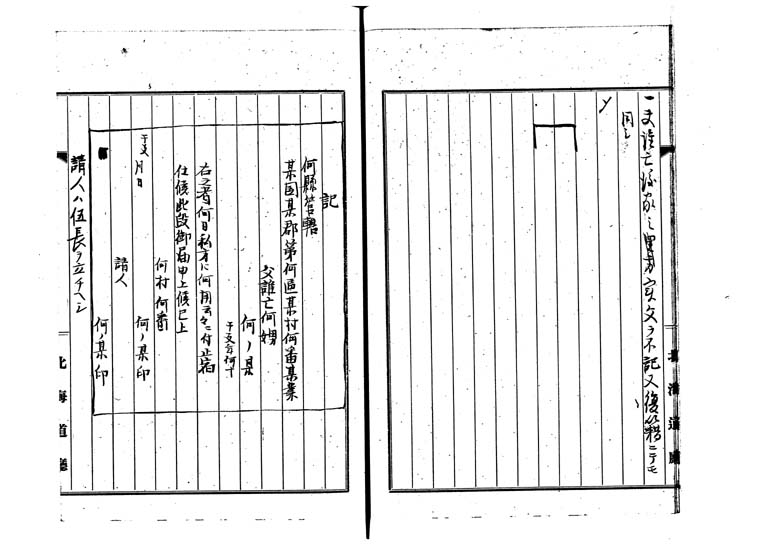 一夫誰亡後家之里方実父ヲ不記又復籍ニテモ
同シ
北海道廳
記
何縣管轄
某国某郡第何區某村何番某業
父誰亡何甥
何ノ某
干支年何十
右之者何日私方江何用云々ニ付止宿
仕候此段御届申上候已上
何村何番
干支月日
何ノ某印
請人
何ノ某印
請人ハ伍長ヲ立チヘシ
北海道廳